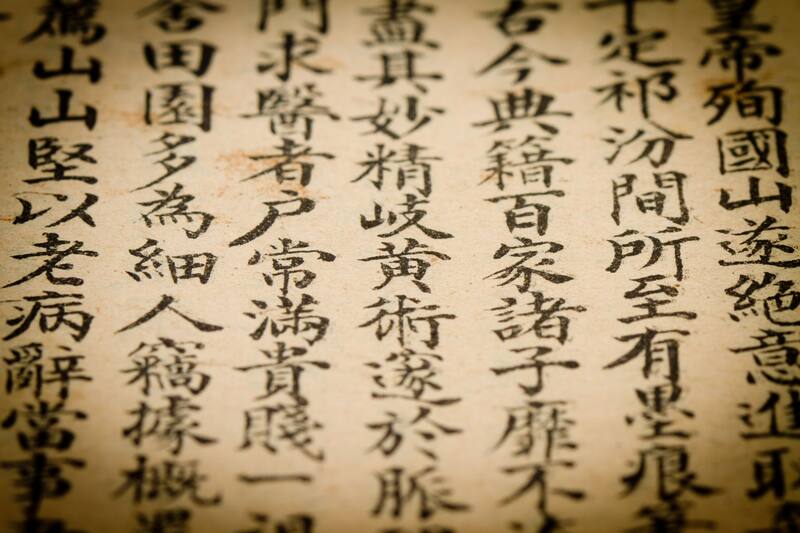 皇帝殉國山遂絶意進取
平定祁汾間所至有墨痕
古今典籍百家諸子靡不
盡其妙精岐黄術邃於脈
門求醫者户常滿貴賤一視
舍田園多為細人竊據概置
薦山山堅以老病辭當事